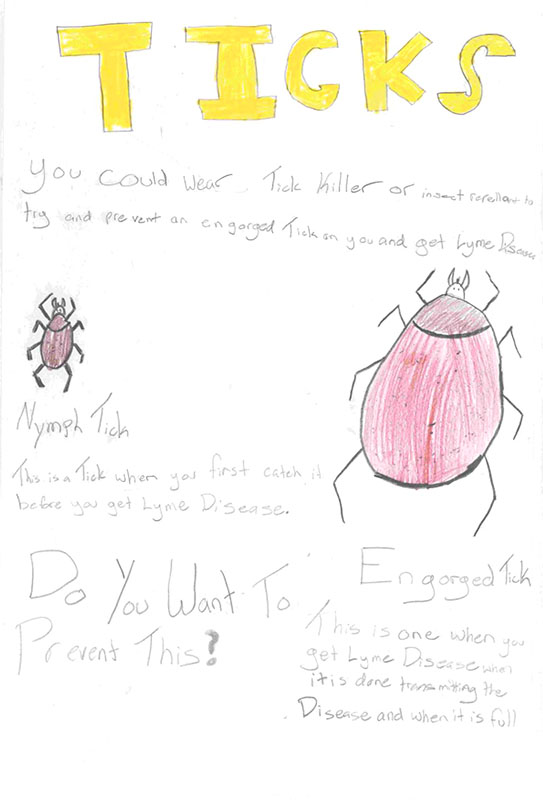 TICKS
You could wear Tick Killer or insect repellant to
try and prevent an engorged Tick on you and get Lyme Disease
Nymph Tick
This is a Tick when you first catch it
before you get Lyme Disease.
Do You Want To
Prevent This?
Engorged Tick
This is one when you
get Lyme Disease when
it is done transmitting the
Disease and when it is full